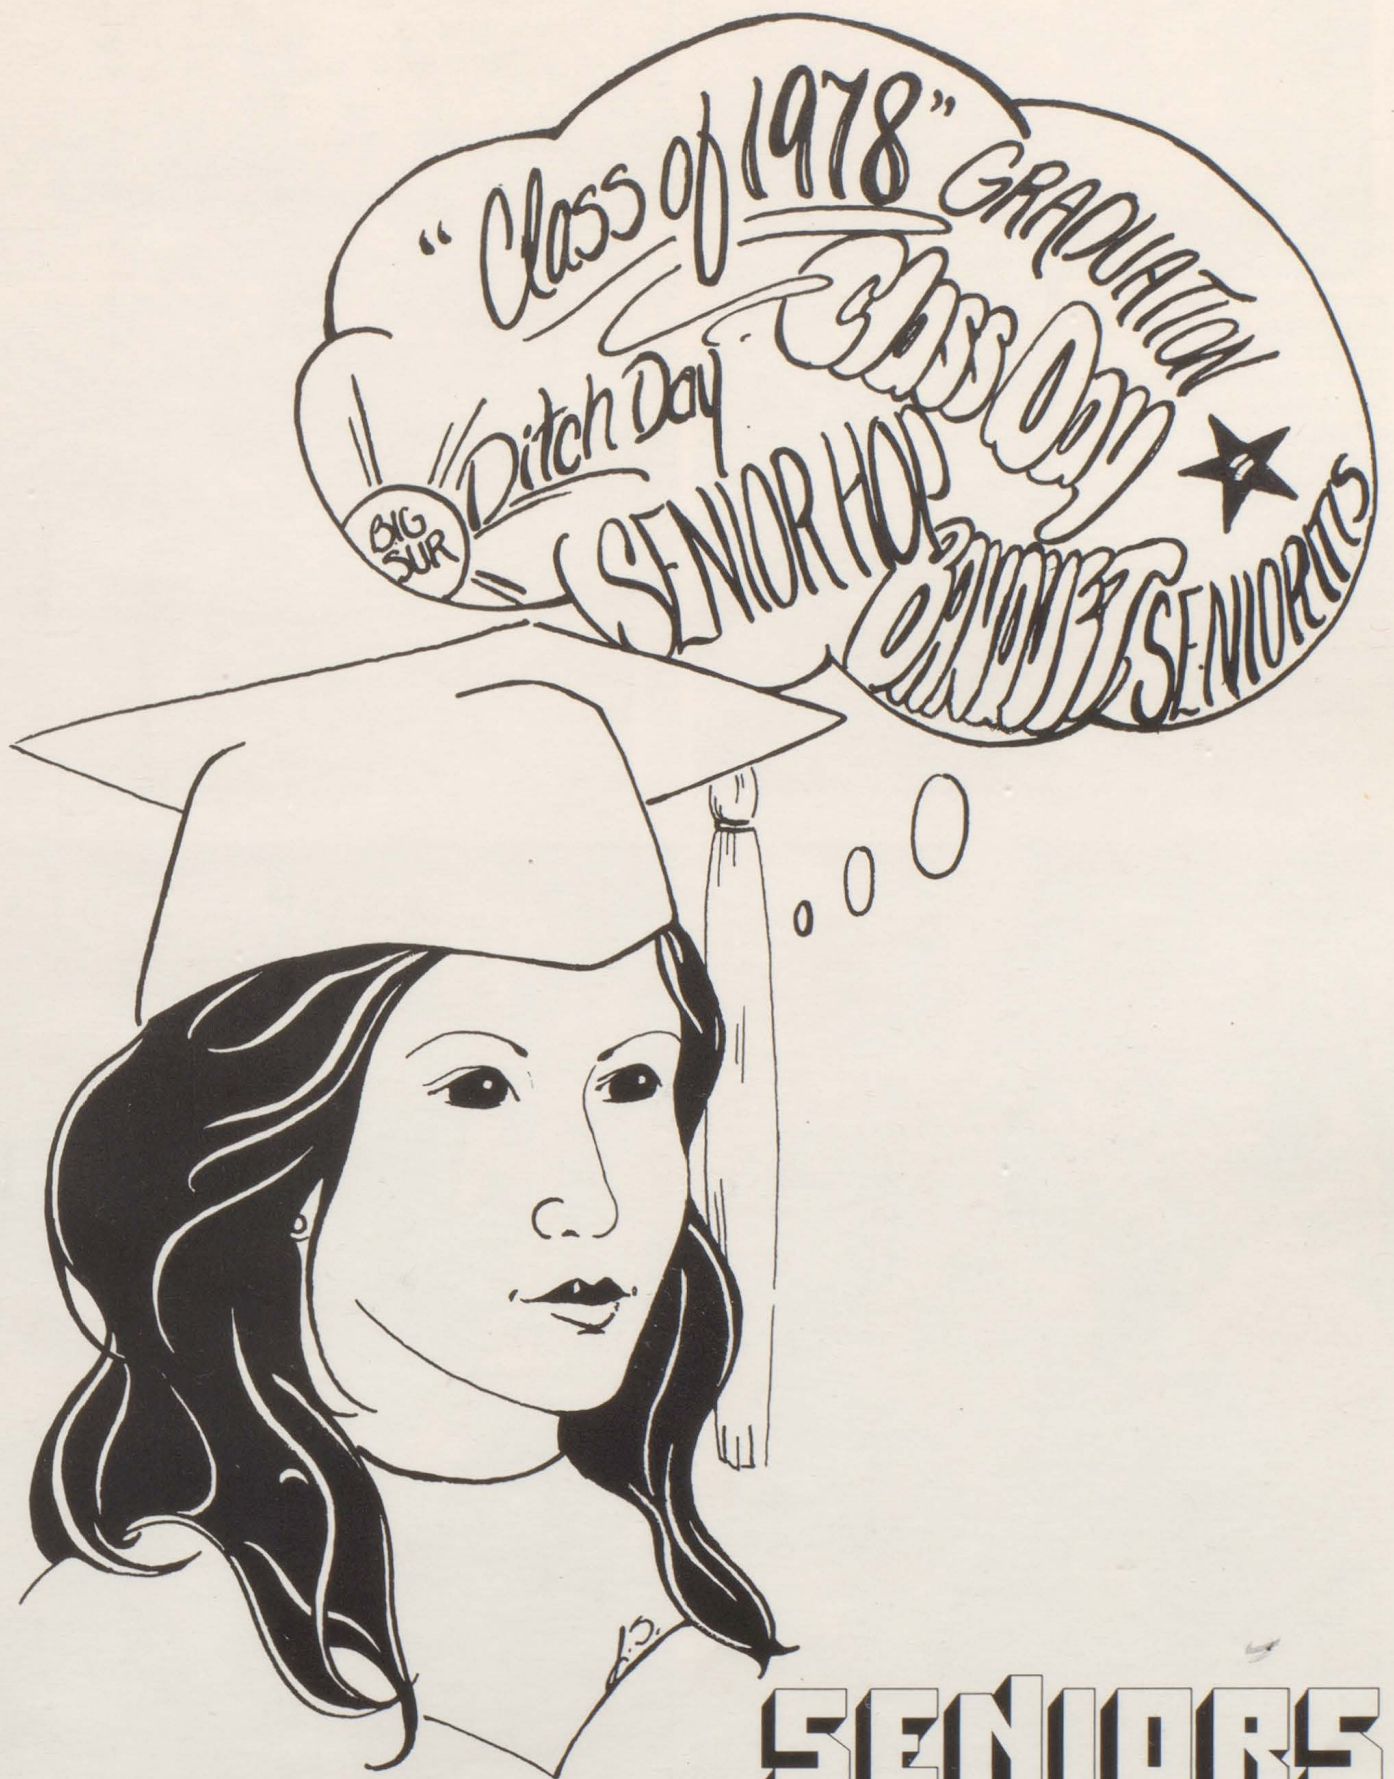 "Class of 1978"
GRADUATION
Class Day
Ditch Day
BIG
SUR
SENIOR HOP
BANQUET
SENIORITIS
L.S.
SENIORS